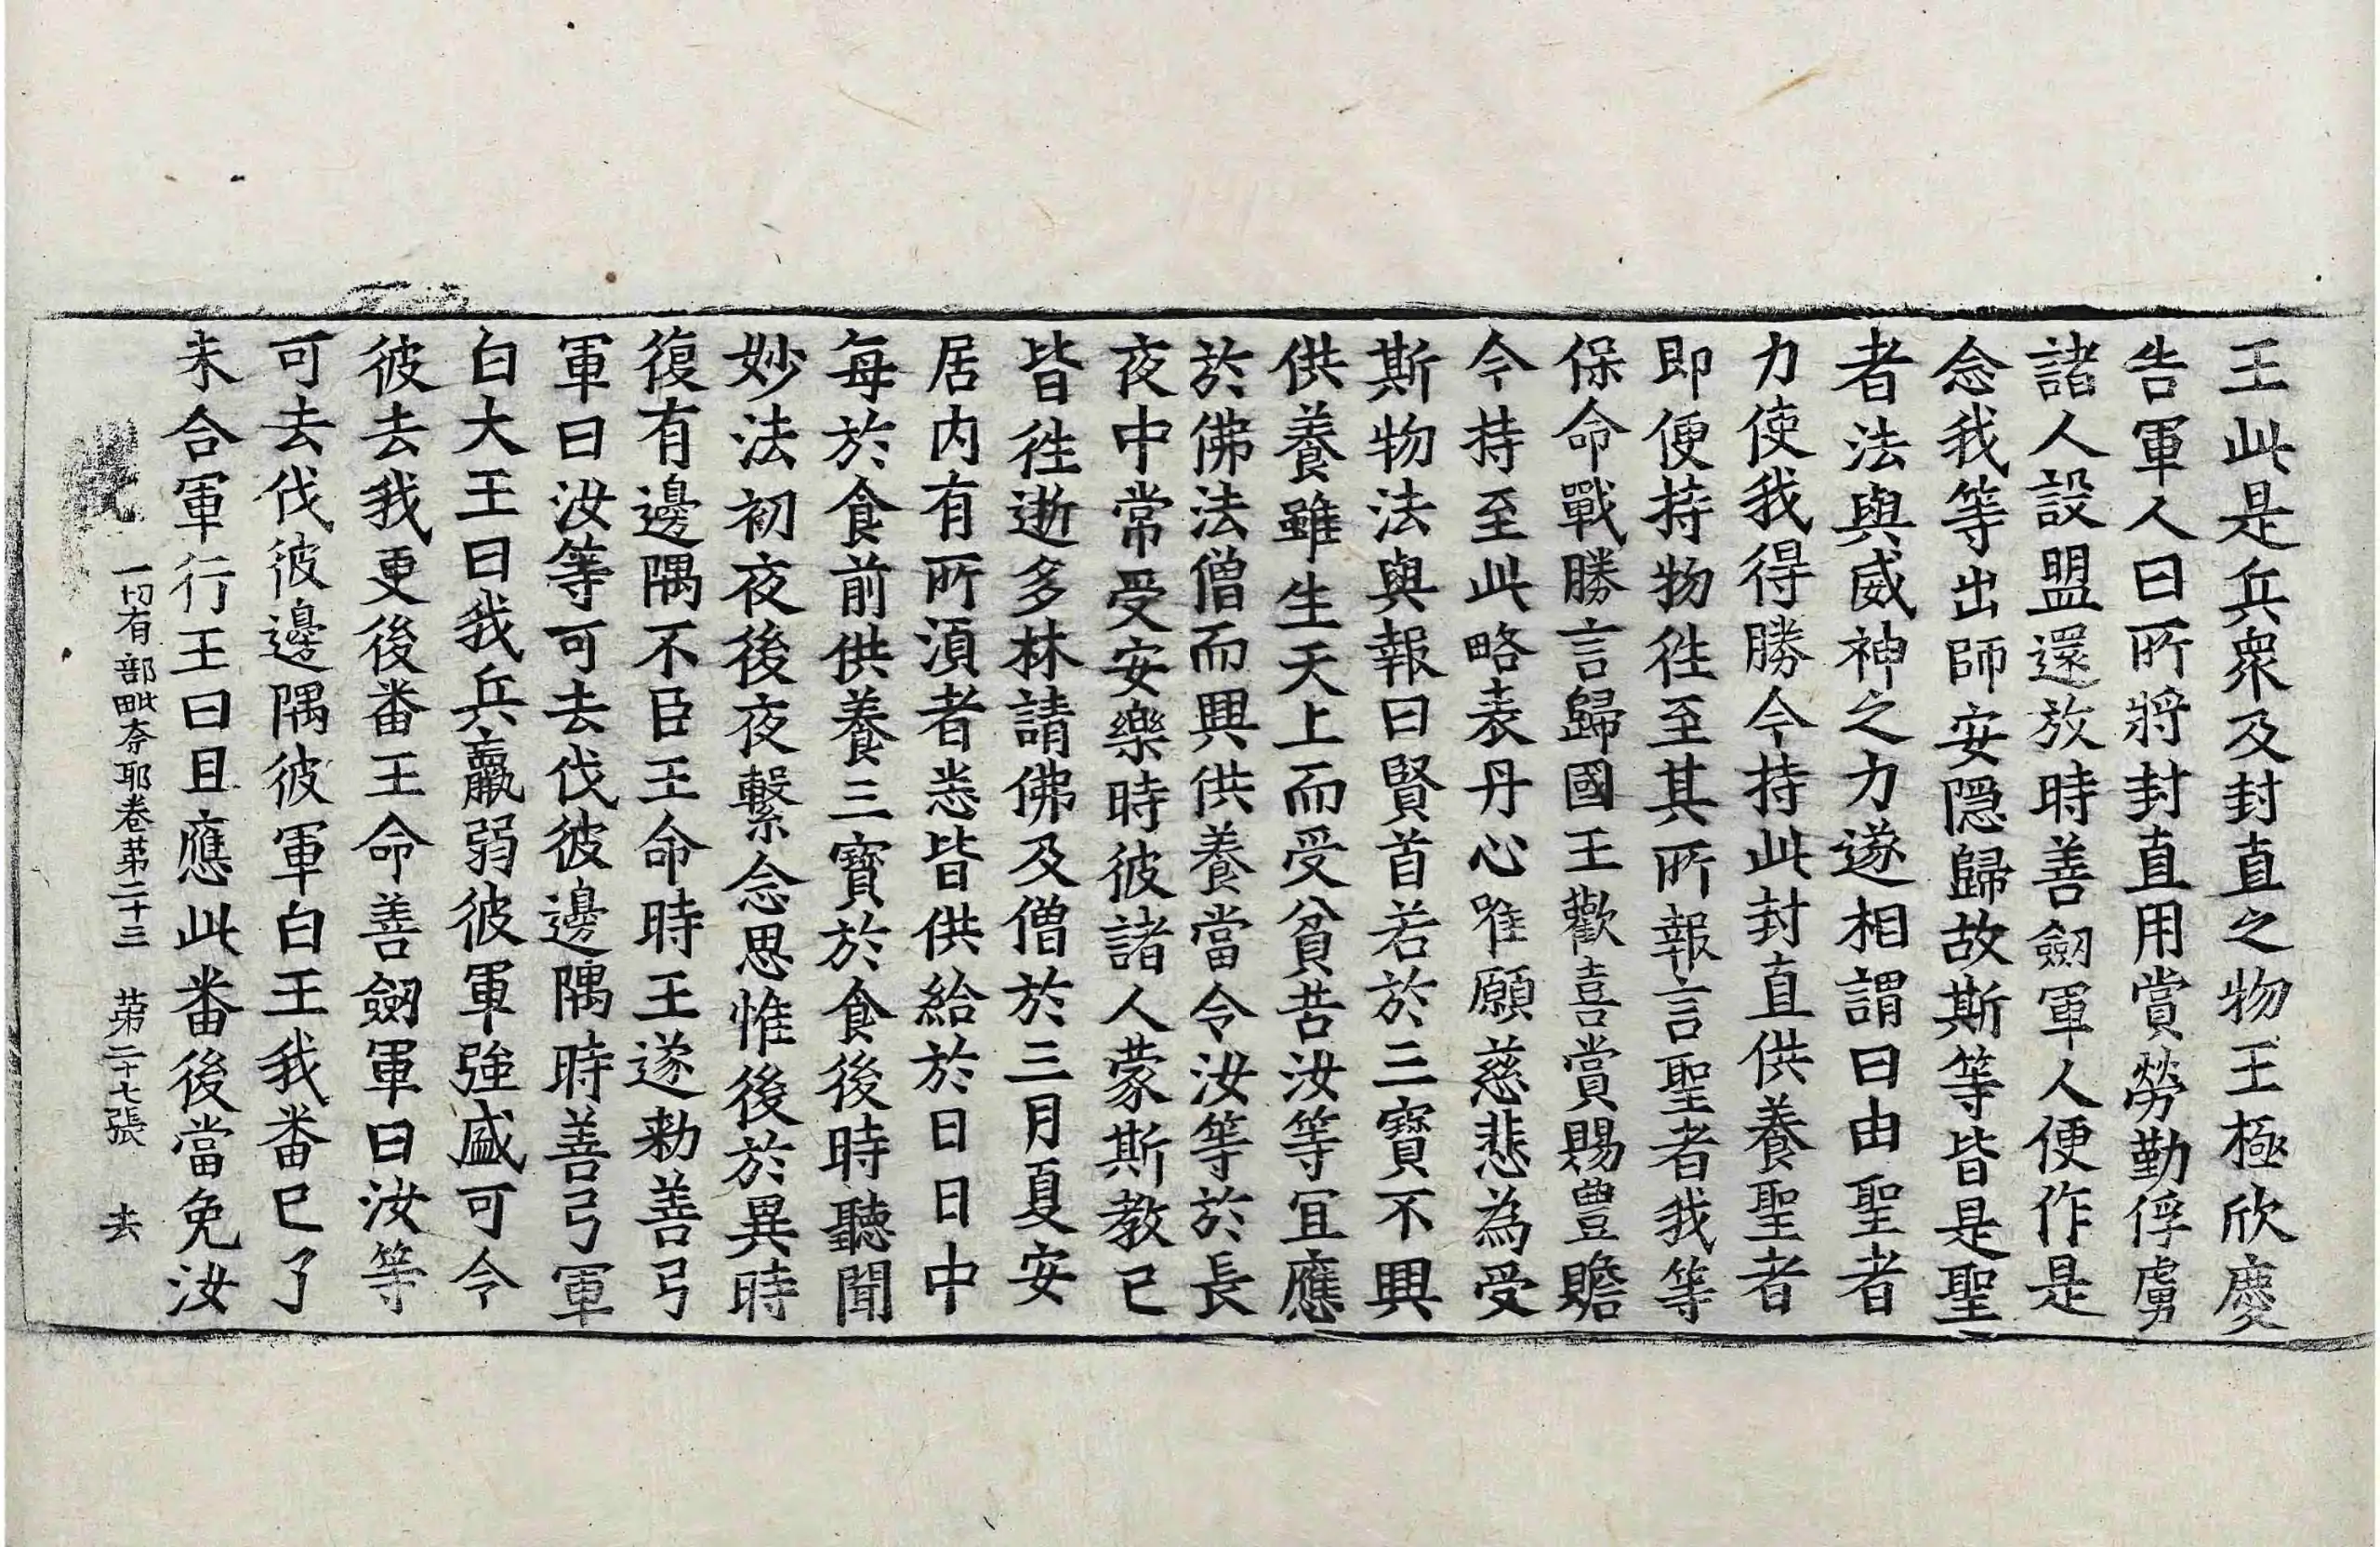 王此是兵衆及封直之物王極欣慶
告軍人曰所將封直用賞勞勤俘虜
諸人設盟還放時善劒軍人便作是
念我等出師安隠歸故斯等皆是聖
者法與威神之力遂相謂曰由聖者
力使我得勝今持此封直供養聖者
即便持物徃至其所報言聖者我等
保命戰勝言歸國王歡喜賞賜豊贍
今持至此略表丹心唯願慈悲為受
斯物法與報曰賢首若於三寶不興
供養雖生天上而受貧苦汝等冝應
於佛法僧而興供養當令汝等於長
夜中常受安樂時彼諸人蒙斯教已
皆徃逝多林請佛及僧於三月夏安
居内有所湏者悉皆供給於日日中
每於食前供養三寶於食後時聽聞
妙法初夜後夜繫念思惟後於異時
復有邊隅不臣王命時王遂勑善弓
軍曰汝等可去伐彼邊隅時善弓軍
白大王曰我兵羸弱彼軍強盛可令
彼去我更後番王命善劒軍曰汝等
可去伐彼邊隅彼軍白王我番已了
未合軍行王曰且應此番後當免汝
一切有部毗奈耶卷苐二十三 苐二十七張 去